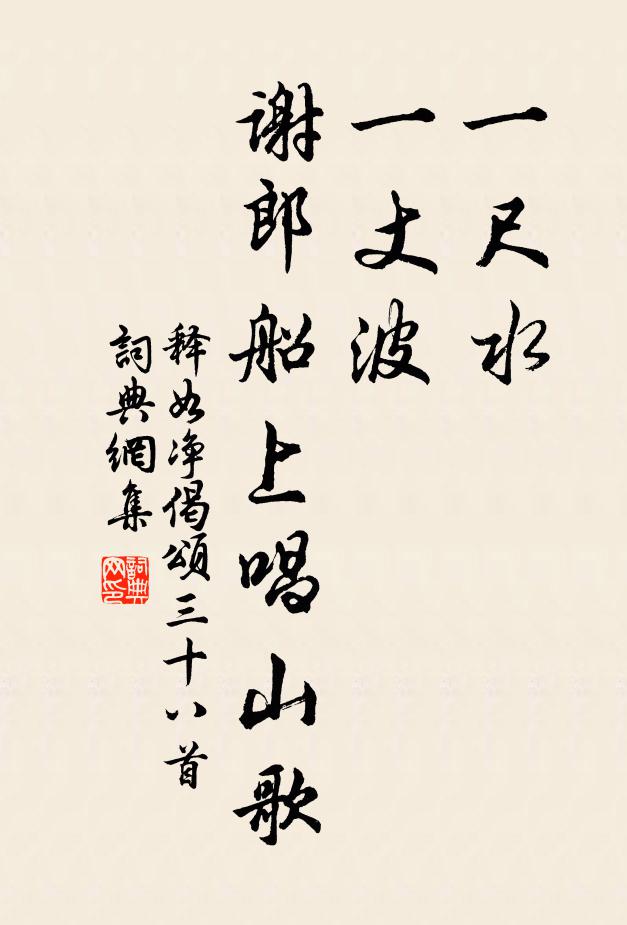 一尺水
一丈波
谢郎船上唱山歌
释如净偈颂三十八首
詞典網集
詞典网印